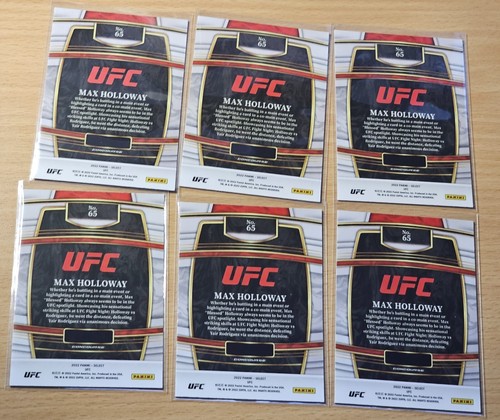 No.
65
UFC
MAX HOLLOWAY
Whether he's battling in a main event or
highlighting a card in a co-main event, Max
"Blessed" Holloway always seems to be in the
UFC spotlight. Showcasing his sensational
striking skills at UFC Fight Night: Holloway vs
Rodriguez, he went the distance, defeating
Yair Rodriguez via unanimous decision.
2022 PANINI - SELECT
UFC
UFC
PANINI
No.
65
UFC
MAX HOLLOWAY
Whether he's battling in a main event or
highlighting a card in a co-main event, Max
"Blessed" Holloway always seems to be in the
UFC spotlight. Showcasing his sensational
striking skills at UFC Fight Night: Holloway vs
Rodriguez, he went the distance, defeating
Yair Rodriguez via unanimous decision.
2022 PANINI - SELECT
UFC
UFC
PANINI
No.
65
UFC
MAX HOLLOWAY
Whether he's battling in a main event or
highlighting a card in a co-main event, Max
"Blessed" Holloway always seems to be in the
UFC spotlight. Showcasing his sensational
striking skills at UFC Fight Night: Holloway vs
Rodriguez, he went the distance, defeating
Yair Rodriguez via unanimous decision.
2022 PANINI - SELECT
UFC
UFC
PANINI
No.
65
UFC
MAX HOLLOWAY
Whether he's battling in a main event or
highlighting a card in a co-main event, Max
"Blessed" Holloway always seems to be in the
UFC spotlight. Showcasing his sensational
striking skills at UFC Fight Night: Holloway vs
Rodriguez, he went the distance, defeating
Yair Rodriguez via unanimous decision.
2022 PANINI - SELECT
UFC
UFC
PANINI
No.
65
UFC
MAX HOLLOWAY
Whether he's battling in a main event or
highlighting a card in a co-main event, Max
"Blessed" Holloway always seems to be in the
UFC spotlight. Showcasing his sensational
striking skills at UFC Fight Night: Holloway vs
Rodriguez, he went the distance, defeating
Yair Rodriguez via unanimous decision.
2022 PANINI - SELECT
UFC
UFC
PANINI
No.
65
UFC
MAX HOLLOWAY
Whether he's battling in a main event or
highlighting a card in a co-main event, Max
"Blessed" Holloway always seems to be in the
UFC spotlight. Showcasing his sensational
striking skills at UFC Fight Night: Holloway vs
Rodriguez, he went the distance, defeating
Yair Rodriguez via unanimous decision.
2022 PANINI - SELECT
UFC
UFC
PANINI